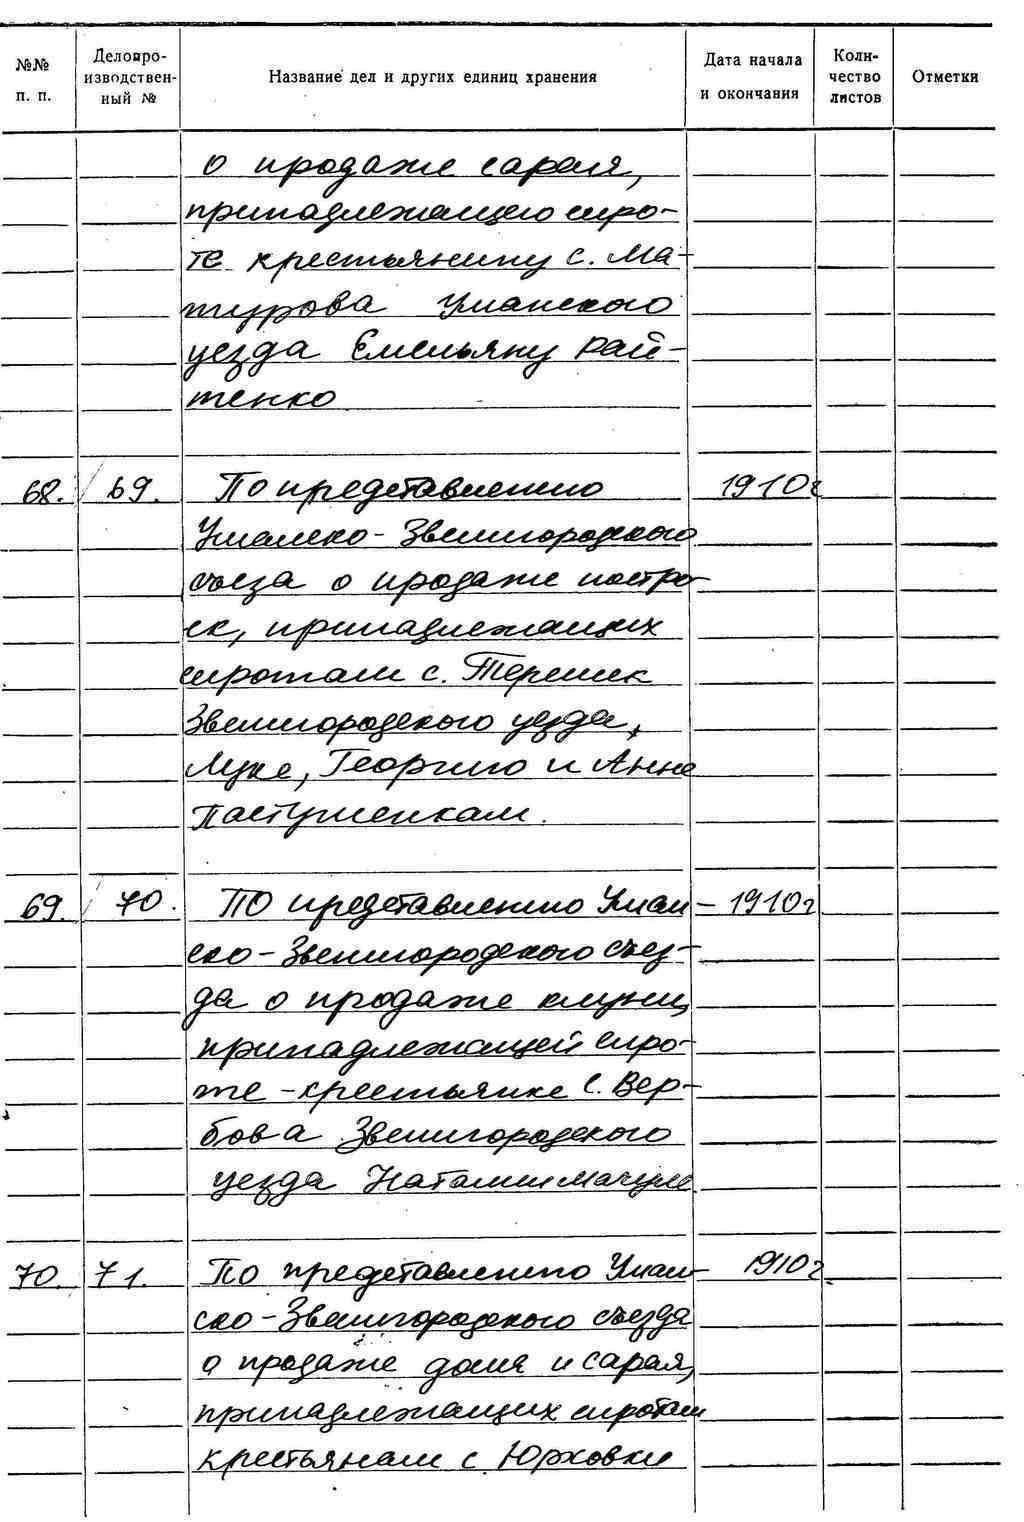 №№ п. п.
Делопро-
изводствен-
ный №
Название дел и других единиц хранения
Дата начала
и окончания
Коли-
чество
листов
Отметки
о продаже сарая,
принадлежащего сиро-
те крестьянину с. Ма-
турова Уманского
уезда Емельяну Рай-
тенко
68. 69. По представлению 1910г
Уманско-Звенигородского
съеза о продаже постро-
ек, принадлежащих
сиротам с. Терешек
Звенигородского уезда,
Луке, Георгию и Анне
Пастушенкам.
69. 70. По представлению Уман- 1910г
ско-Звенигородского съез-
да о продаже клуни,
принадлежащей сиро-
те-крестьянке с. Вер-
бова Звенигородского
уезда Наталии Мачуле.
70. 71. По представлению Уман- 1910г.
ско-Звенигородского съезда
о продаже дома и сарая,
принадлежащих сиротам
крестьянам с. Юрковки